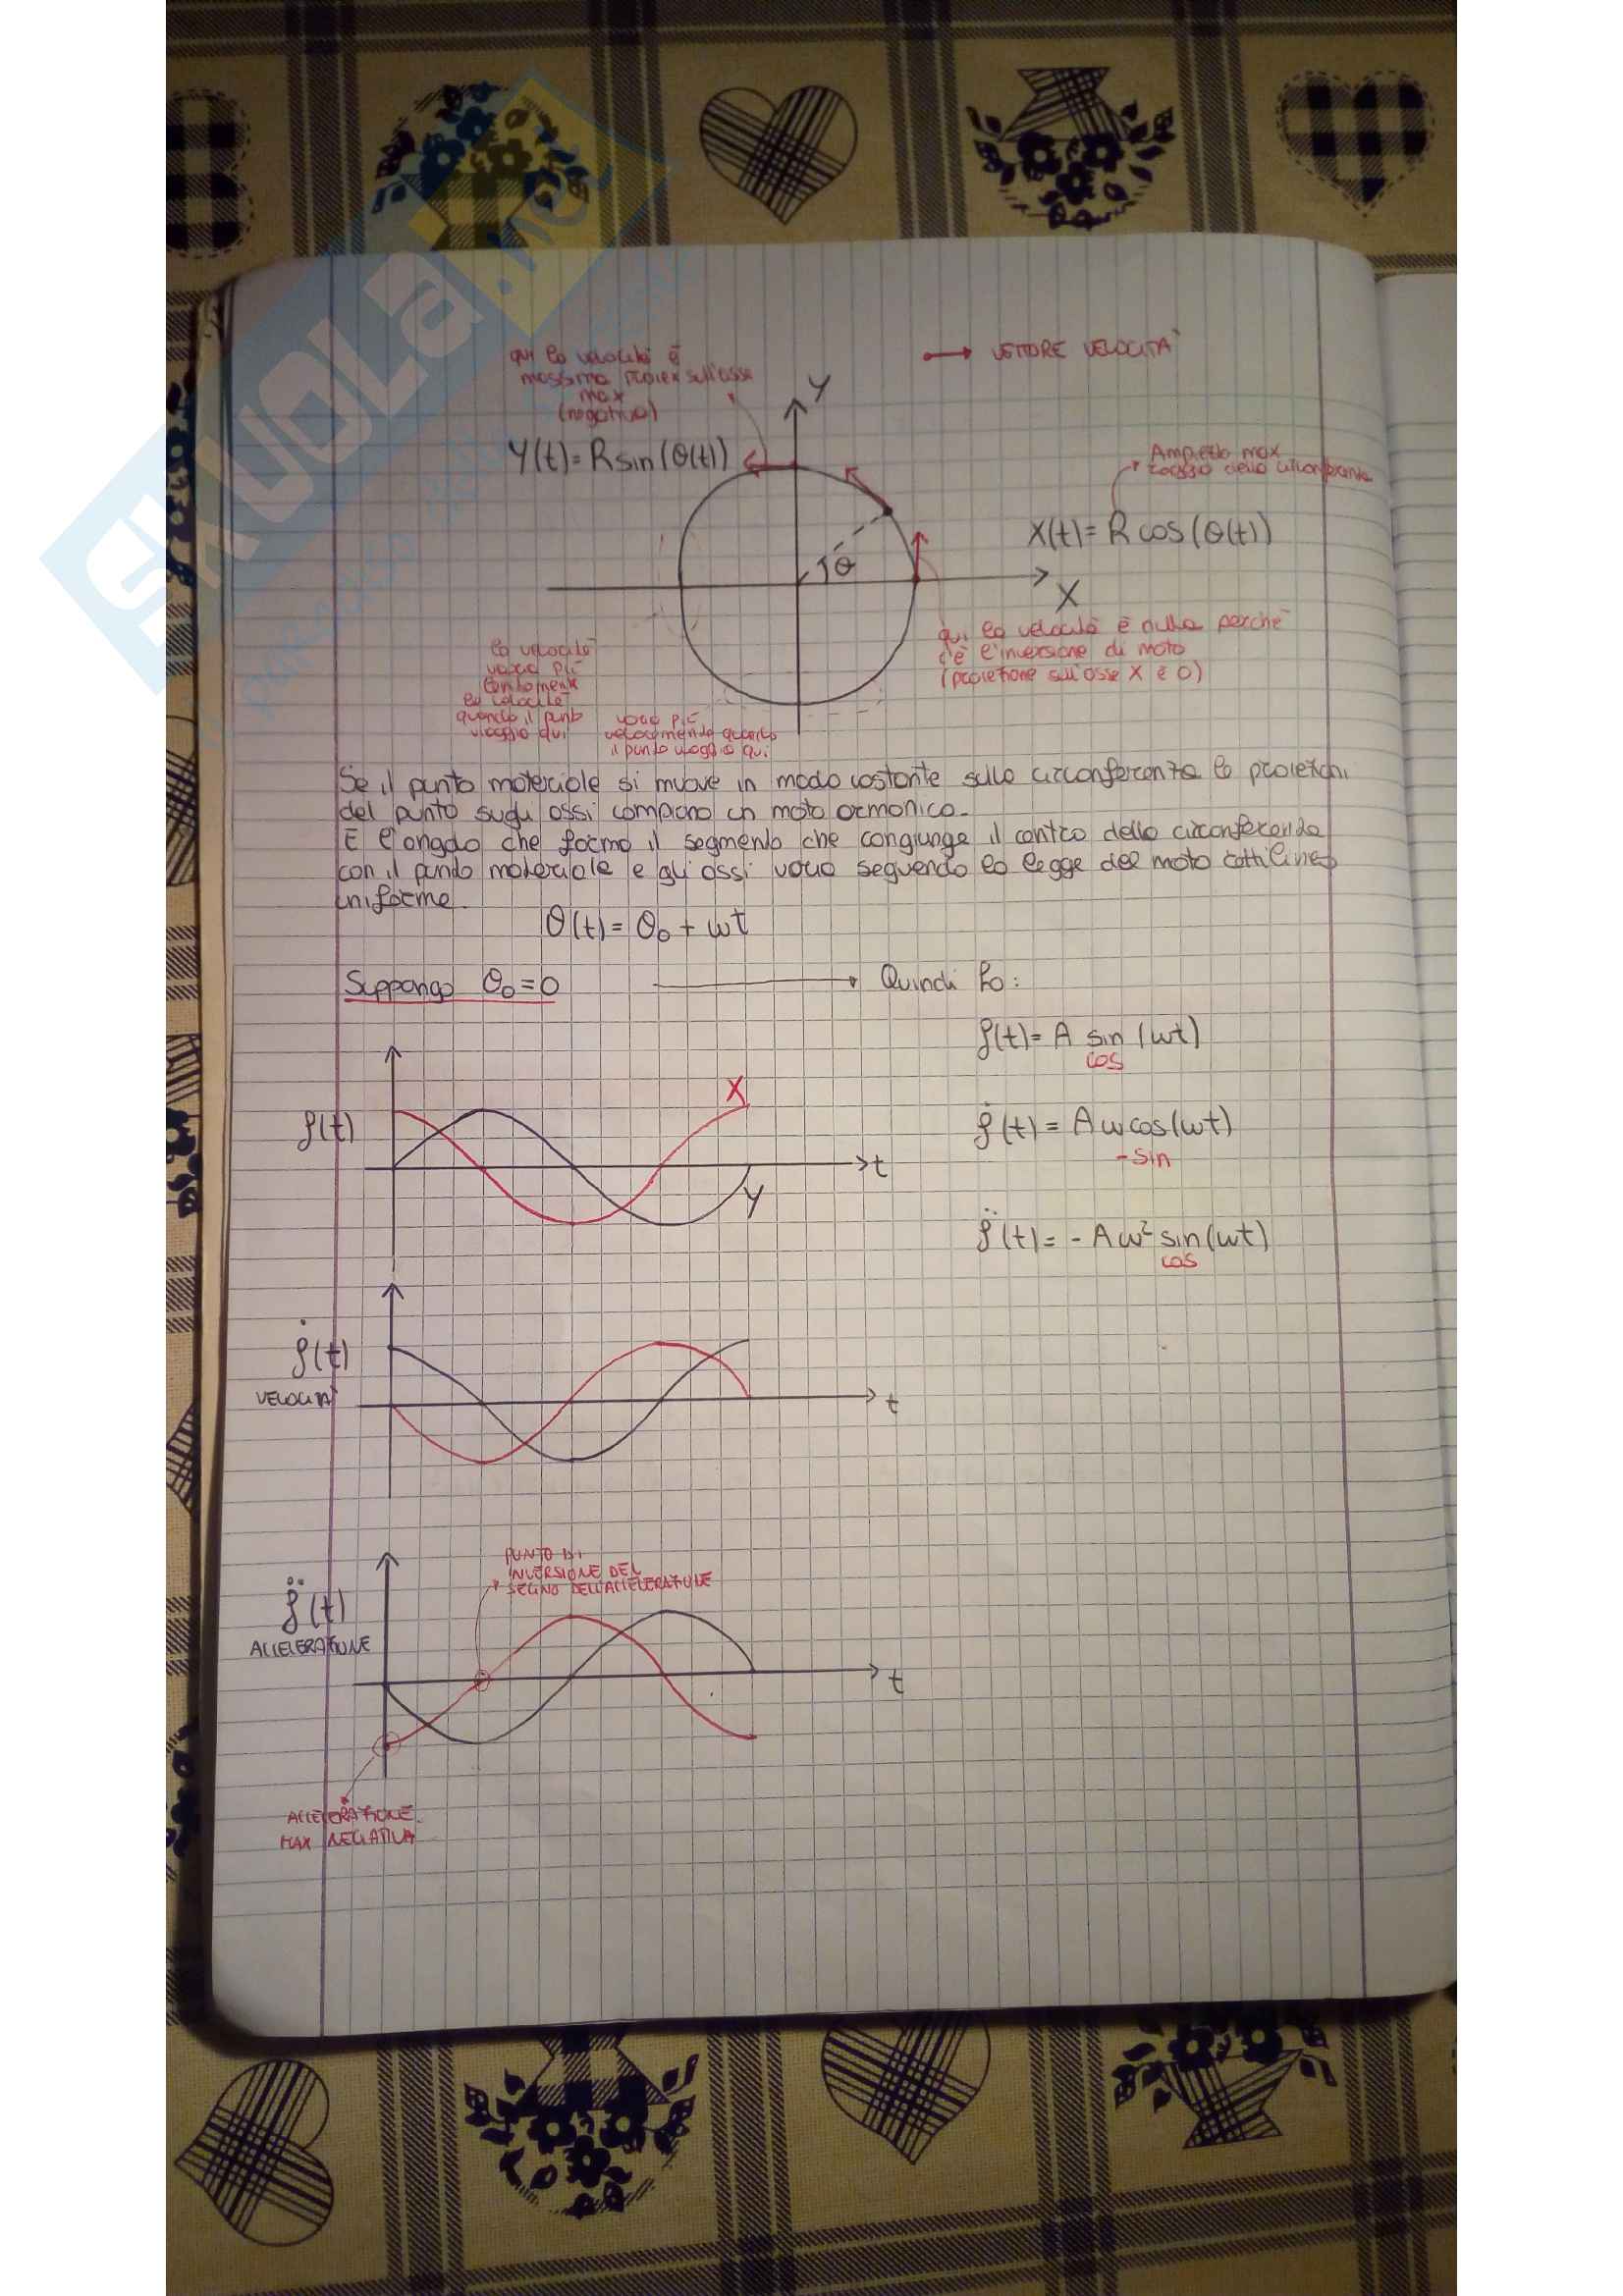 SKUOLA.net
→ VETTORE VELOCITÀ
qui la velocità è
massima proiex sull'asse
max
(negativa)
Y
Y(t)= R sin(θ(t))
Ampiezza max
raggio della circonferenza
X(t)= R cos(θ(t))
θ
X
qui la velocità è nulla perché
c'è l'inversione di moto
(proiezione sull'asse X è 0)
la velocità
varia più
lentamente
la velocità
quando il punto
viaggia qui
varia più
velocemente quando
il punto viaggia qui
Se il punto materiale si muove in modo costante sulla circonferenza le proiezioni
del punto sugli assi compiono un moto armonico.
E l'angolo che forma il segmento che congiunge il centro della circonferenza
con il punto materiale e gli assi varia seguendo la legge del moto rettilineo
uniforme.
θ(t)= θ₀ + ωt
Suppongo θ₀=0 → Quindi ho:
ρ(t)= A sin (ωt)
cos
X
ρ(t)
t
Y
ρ̇(t) = A ω cos(ωt)
-sin
ρ̈(t)= - A ω² sin(ωt)
cos
ρ̇(t)
VELOCITÀ
t
PUNTO DI
INVERSIONE DEL
SEGNO DELL'ACCELERAZIONE
ρ̈(t)
ACCELERAZIONE
t
ACCELERAZIONE
MAX NEGATIVA